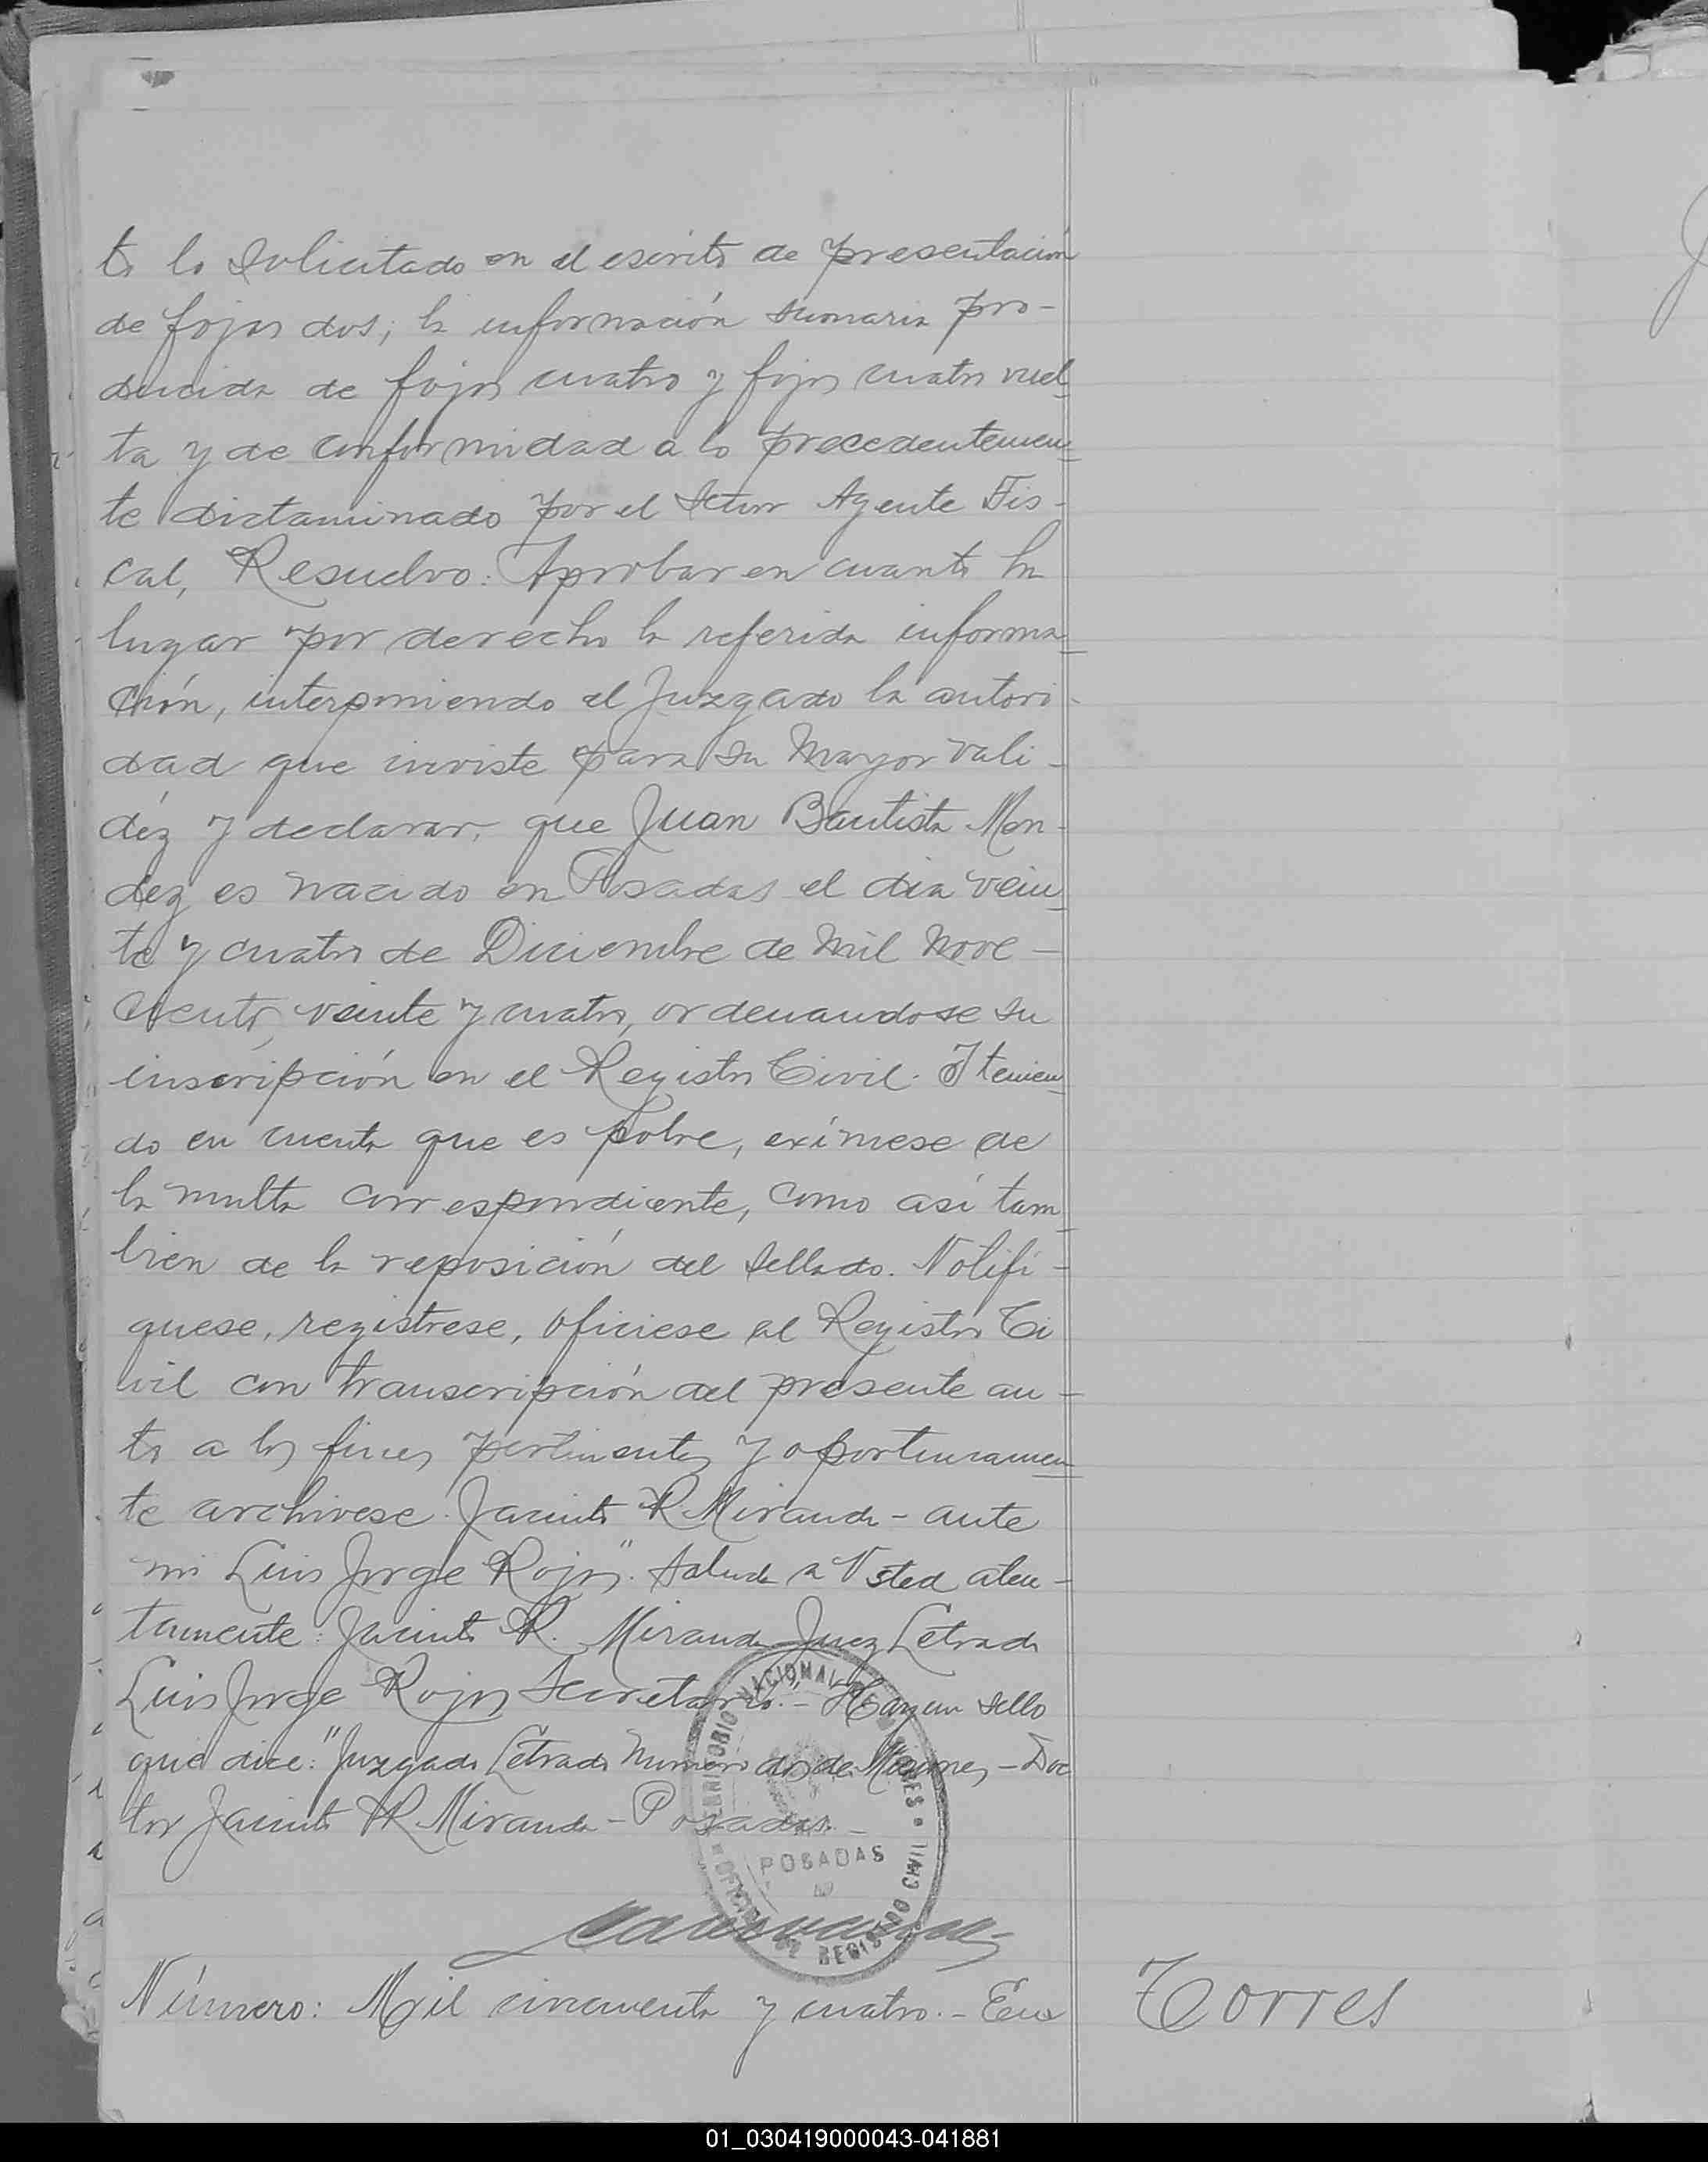 to lo solicitado en el escrito de presentación
de fojas dos; la información sumaria pro-
ducida de fojas cuatro y fojas cuatro vuel-
ta y de conformidad a lo precedentemen-
te dictaminado por el Señor Agente Fis-
cal, Resuelvo: Aprobar en cuanto ha
lugar por derecho la referida informa-
ción, interponiendo el Juzgado la autori-
dad que inviste para su mayor vali-
déz y declarar, que Juan Bautista Men-
dez es nacido en Posadas el dia vein-
te y cuatro de Diciembre de mil nove-
cientos veinte y cuatro, ordenandose su
inscripción en el Registro Civil. Y tenien-
do en cuenta que es pobre, exímese de
la multa correspondiente, como así tam-
bien de la reposición del sellado. Notifi-
quese, registrese, oficiese al Registro Ci
vil con transcripción del presente au-
to a los fines pertinentes y oportunamen-
te archivese. Jacinto R Miranda - ante
mi Luis Jorge Rojas". Saluda a Usted aten-
tamente: Jacinto R. Miranda Juez Letrado
Luis Jorge Rojas Secretario. - Hay un sello
que dice: "Juzgado Letrado Numero dos de Misiones - Doc
tor Jacinto R Miranda - Posadas. -
TERRITORIO NACIONAL DE MISIONES
POSADAS
OFICINA DEL REGISTRO CIVIL
Número: Mil cincuenta y cuatro. - En
Torres
01_030419000043-041881